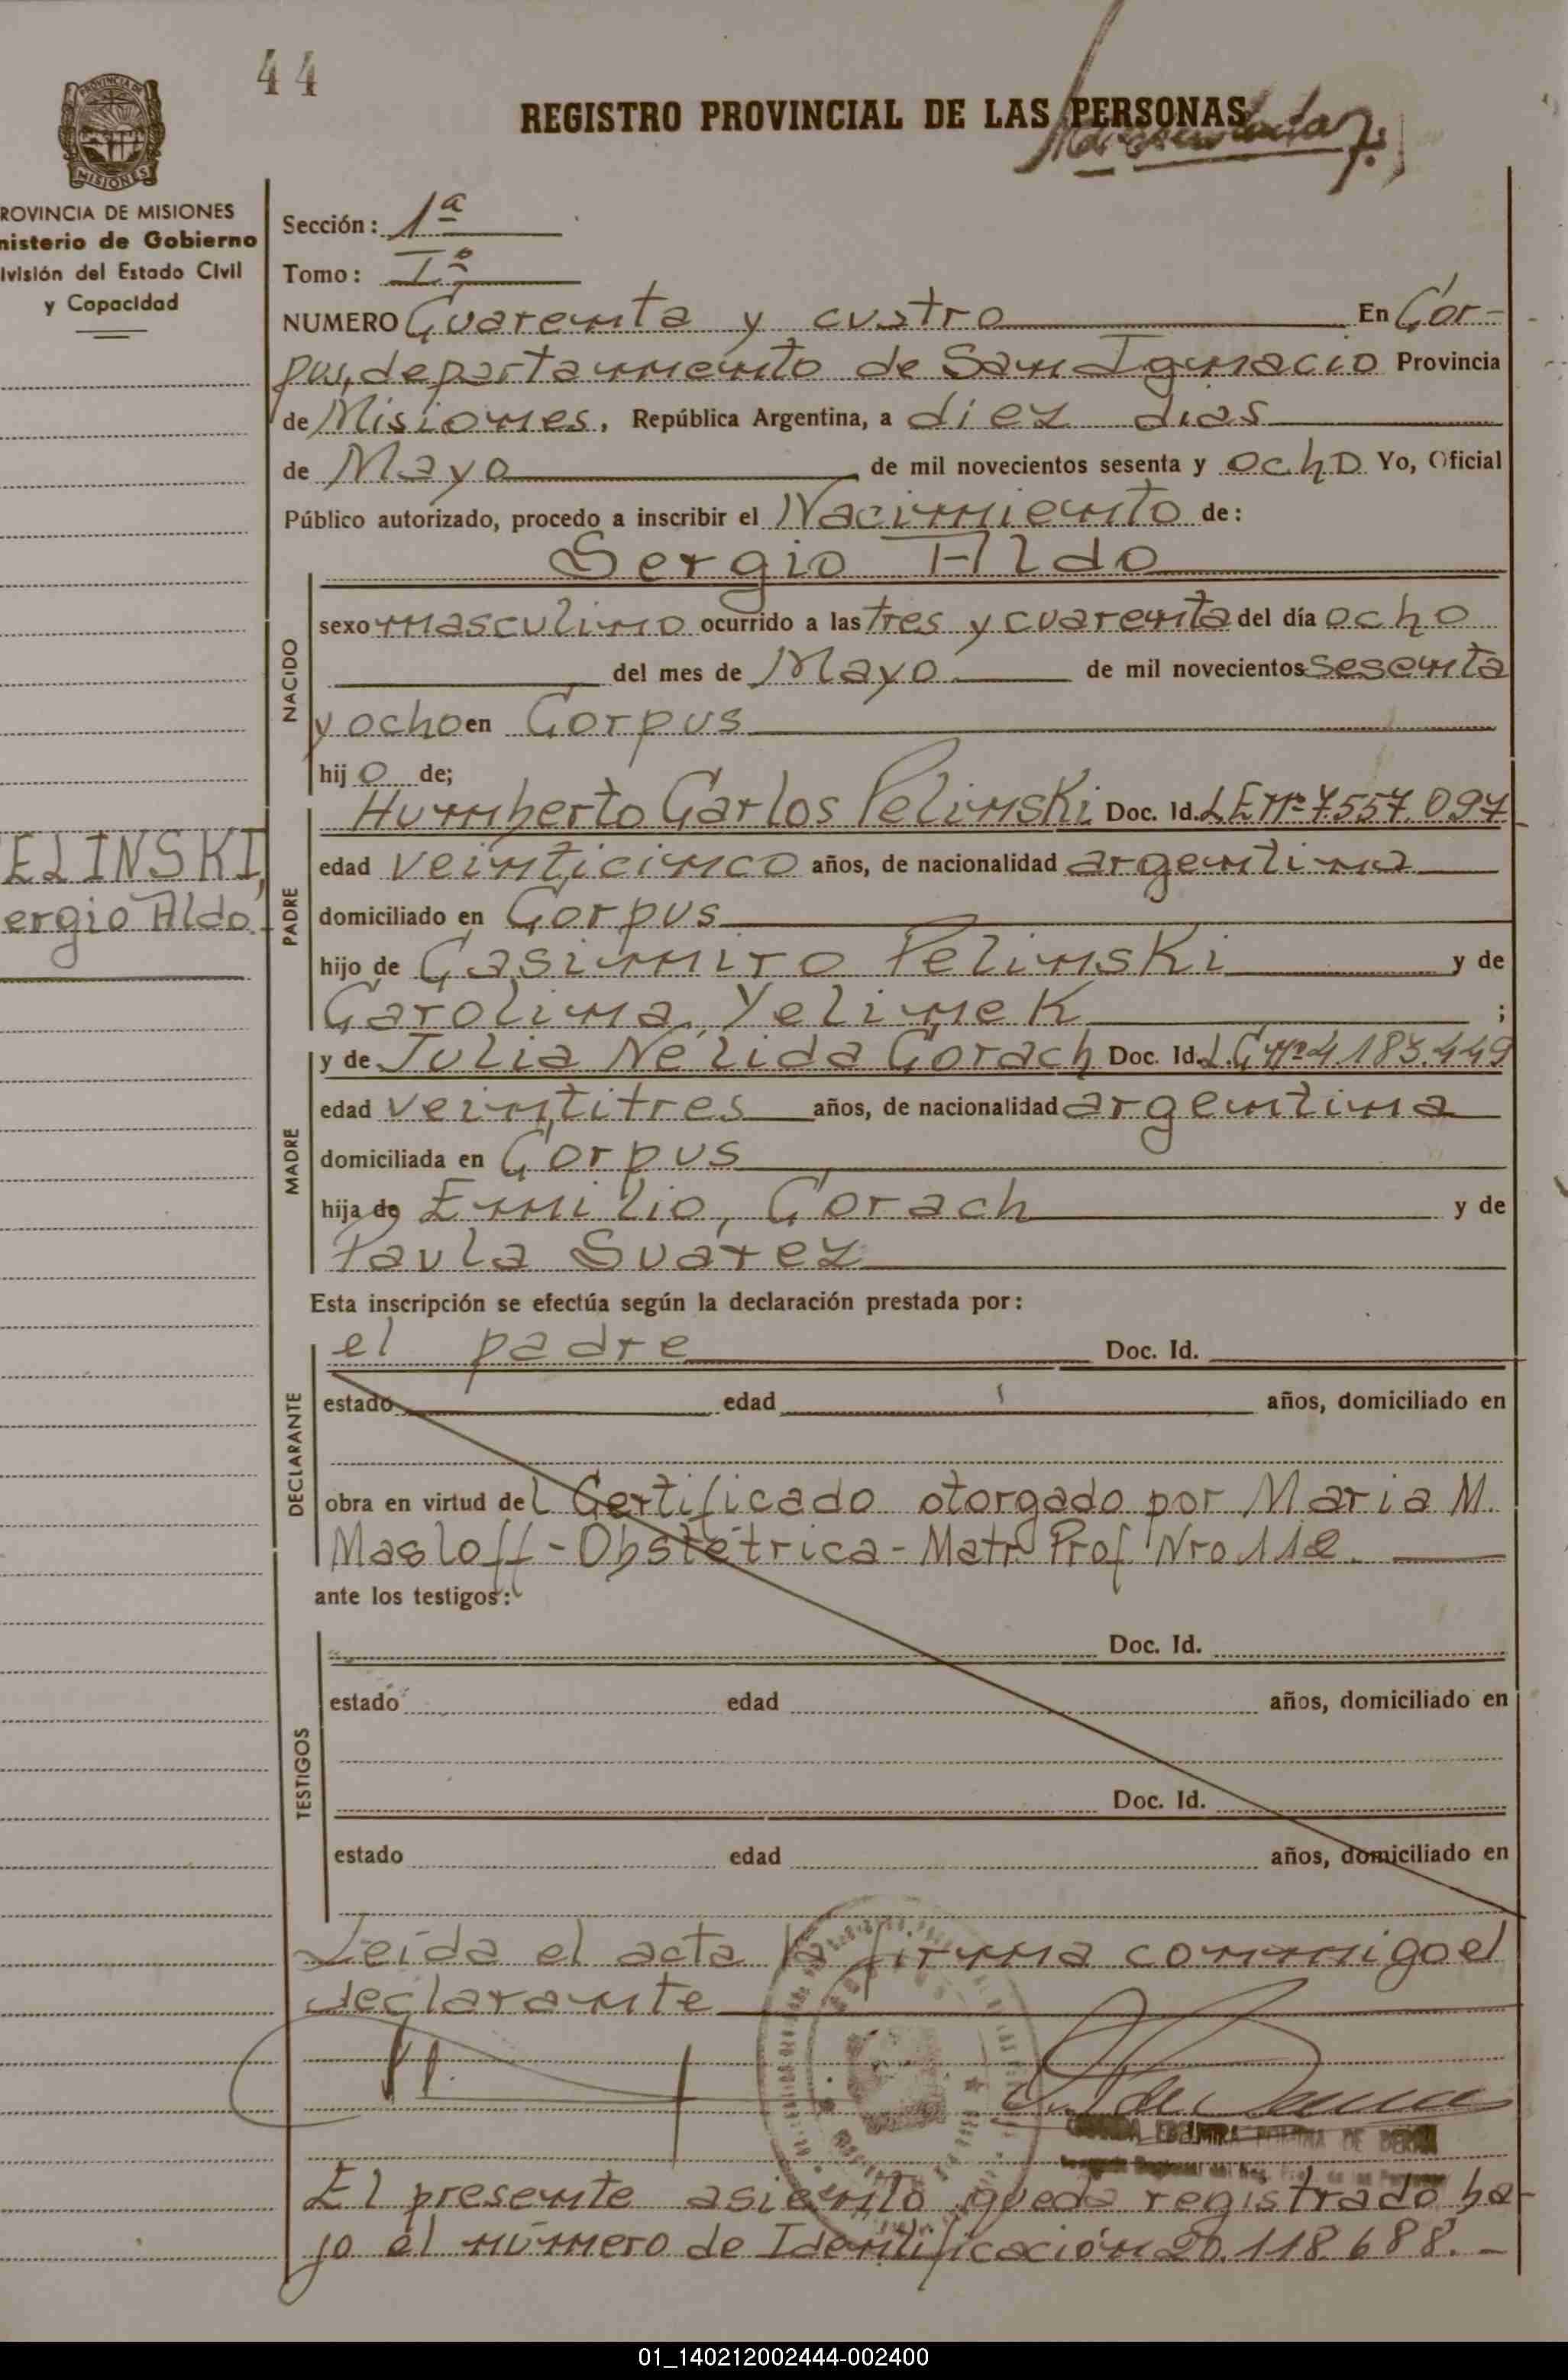 44
REGISTRO PROVINCIAL DE LAS PERSONAS
PROVINCIA DE
MISIONES
ROVINCIA DE MISIONES
nisterio de Gobierno
ivisión del Estado Civil
y Capacidad
Sección: 1ª
Tomo: Iº
NUMERO Cuarenta y cuatro En Cor-
pus, departamento de San Ignacio Provincia
de Misiones, República Argentina, a diez dias
de Mayo de mil novecientos sesenta y ocho Yo, Oficial
Público autorizado, procedo a inscribir el Nacimiento de:
Sergio Aldo
NACIDO
sexo masculino ocurrido a las tres y cuarenta del día ocho
del mes de Mayo de mil novecientos sesenta
y ocho en Corpus
hijo de;
PADRE
Humberto Carlos Pelinski Doc. Id. L.E Nº 7.557.097
edad veinticinco años, de nacionalidad argentina
domiciliado en Corpus
hijo de Casimiro Pelinski y de
Carolina Yelinek ;
ELINSKI,
ergio Aldo.
MADRE
y de Julia Nélida Corach Doc. Id. L.C Nº 4.183.449
edad veintitres años, de nacionalidad argentina
domiciliada en Corpus
hija de Emilio, Corach y de
Paula Suárez
Esta inscripción se efectúa según la declaración prestada por:
DECLARANTE
el padre Doc. Id.
estado edad años, domiciliado en
obra en virtud del Certificado otorgado por Maria M.
Masloff - Obstétrica - Matr. Prof Nro 112.
ante los testigos:
TESTIGOS
Doc. Id.
estado edad años, domiciliado en
Doc. Id.
estado edad años, domiciliado en
Leida el acta la firma conmigo el
declarante
DE
El presente asiento queda registrado ba-
jo el número de Identificación 20.118.688.-
01_140212002444-002400